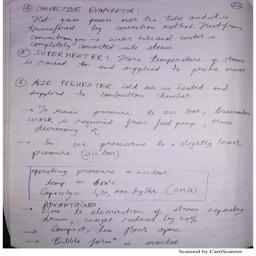 ④ CONVECTIVE EVAPORATOR:
Hot gases passes over the tubes and it is
transferred by convection method. Heat from
convection gas → water tubes and water is
completely converted into steam
⑤ SUPERHEATER: Here temperature of steam
is raised to and supplied to prime mover
⑥ AIR PREHEATER: cold air is heated and
supplied to combustion chamber
→ To raise pressure to bar, tremendous
work is required from feed pump, thus
decreasing η
→ So are pressurised to a slightly lower
pressure (200 bar)
operating pressure = bar
temp =
Capacity = kg/hr
ADVANTAGES
→ Due to elimination of steam separating
drum, weight reduced by 20%
→ Compact, less floor space.
→ "Bubble form" is avoided.
Scanned by CamScanner